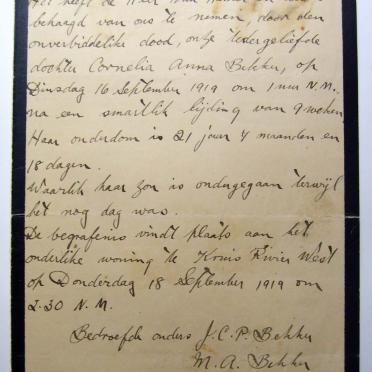 Het heeft de Heer van
behaagd van ons te nemen, door den
onverbiddelike dood, onze teder geliefde
dochter Cornelia Anna Bekker, op
Dinsdag 16 September 1919 om 1 uur N.M.
na een smartlik lijding van 9 weken
Haar ouderdom is 21 jaar 4 maanden en
18 dagen.
Waarlik haar zon is ondergegaan terwijl
het nog dag was.
De begrafenis vindt plaats aan het
ouderlike woning te Krois Rivier West
op Donderdag 18 September 1919 om
2.30 N.M.
Bedroefde ouders J.C.P. Bekker
M.A. Bekker